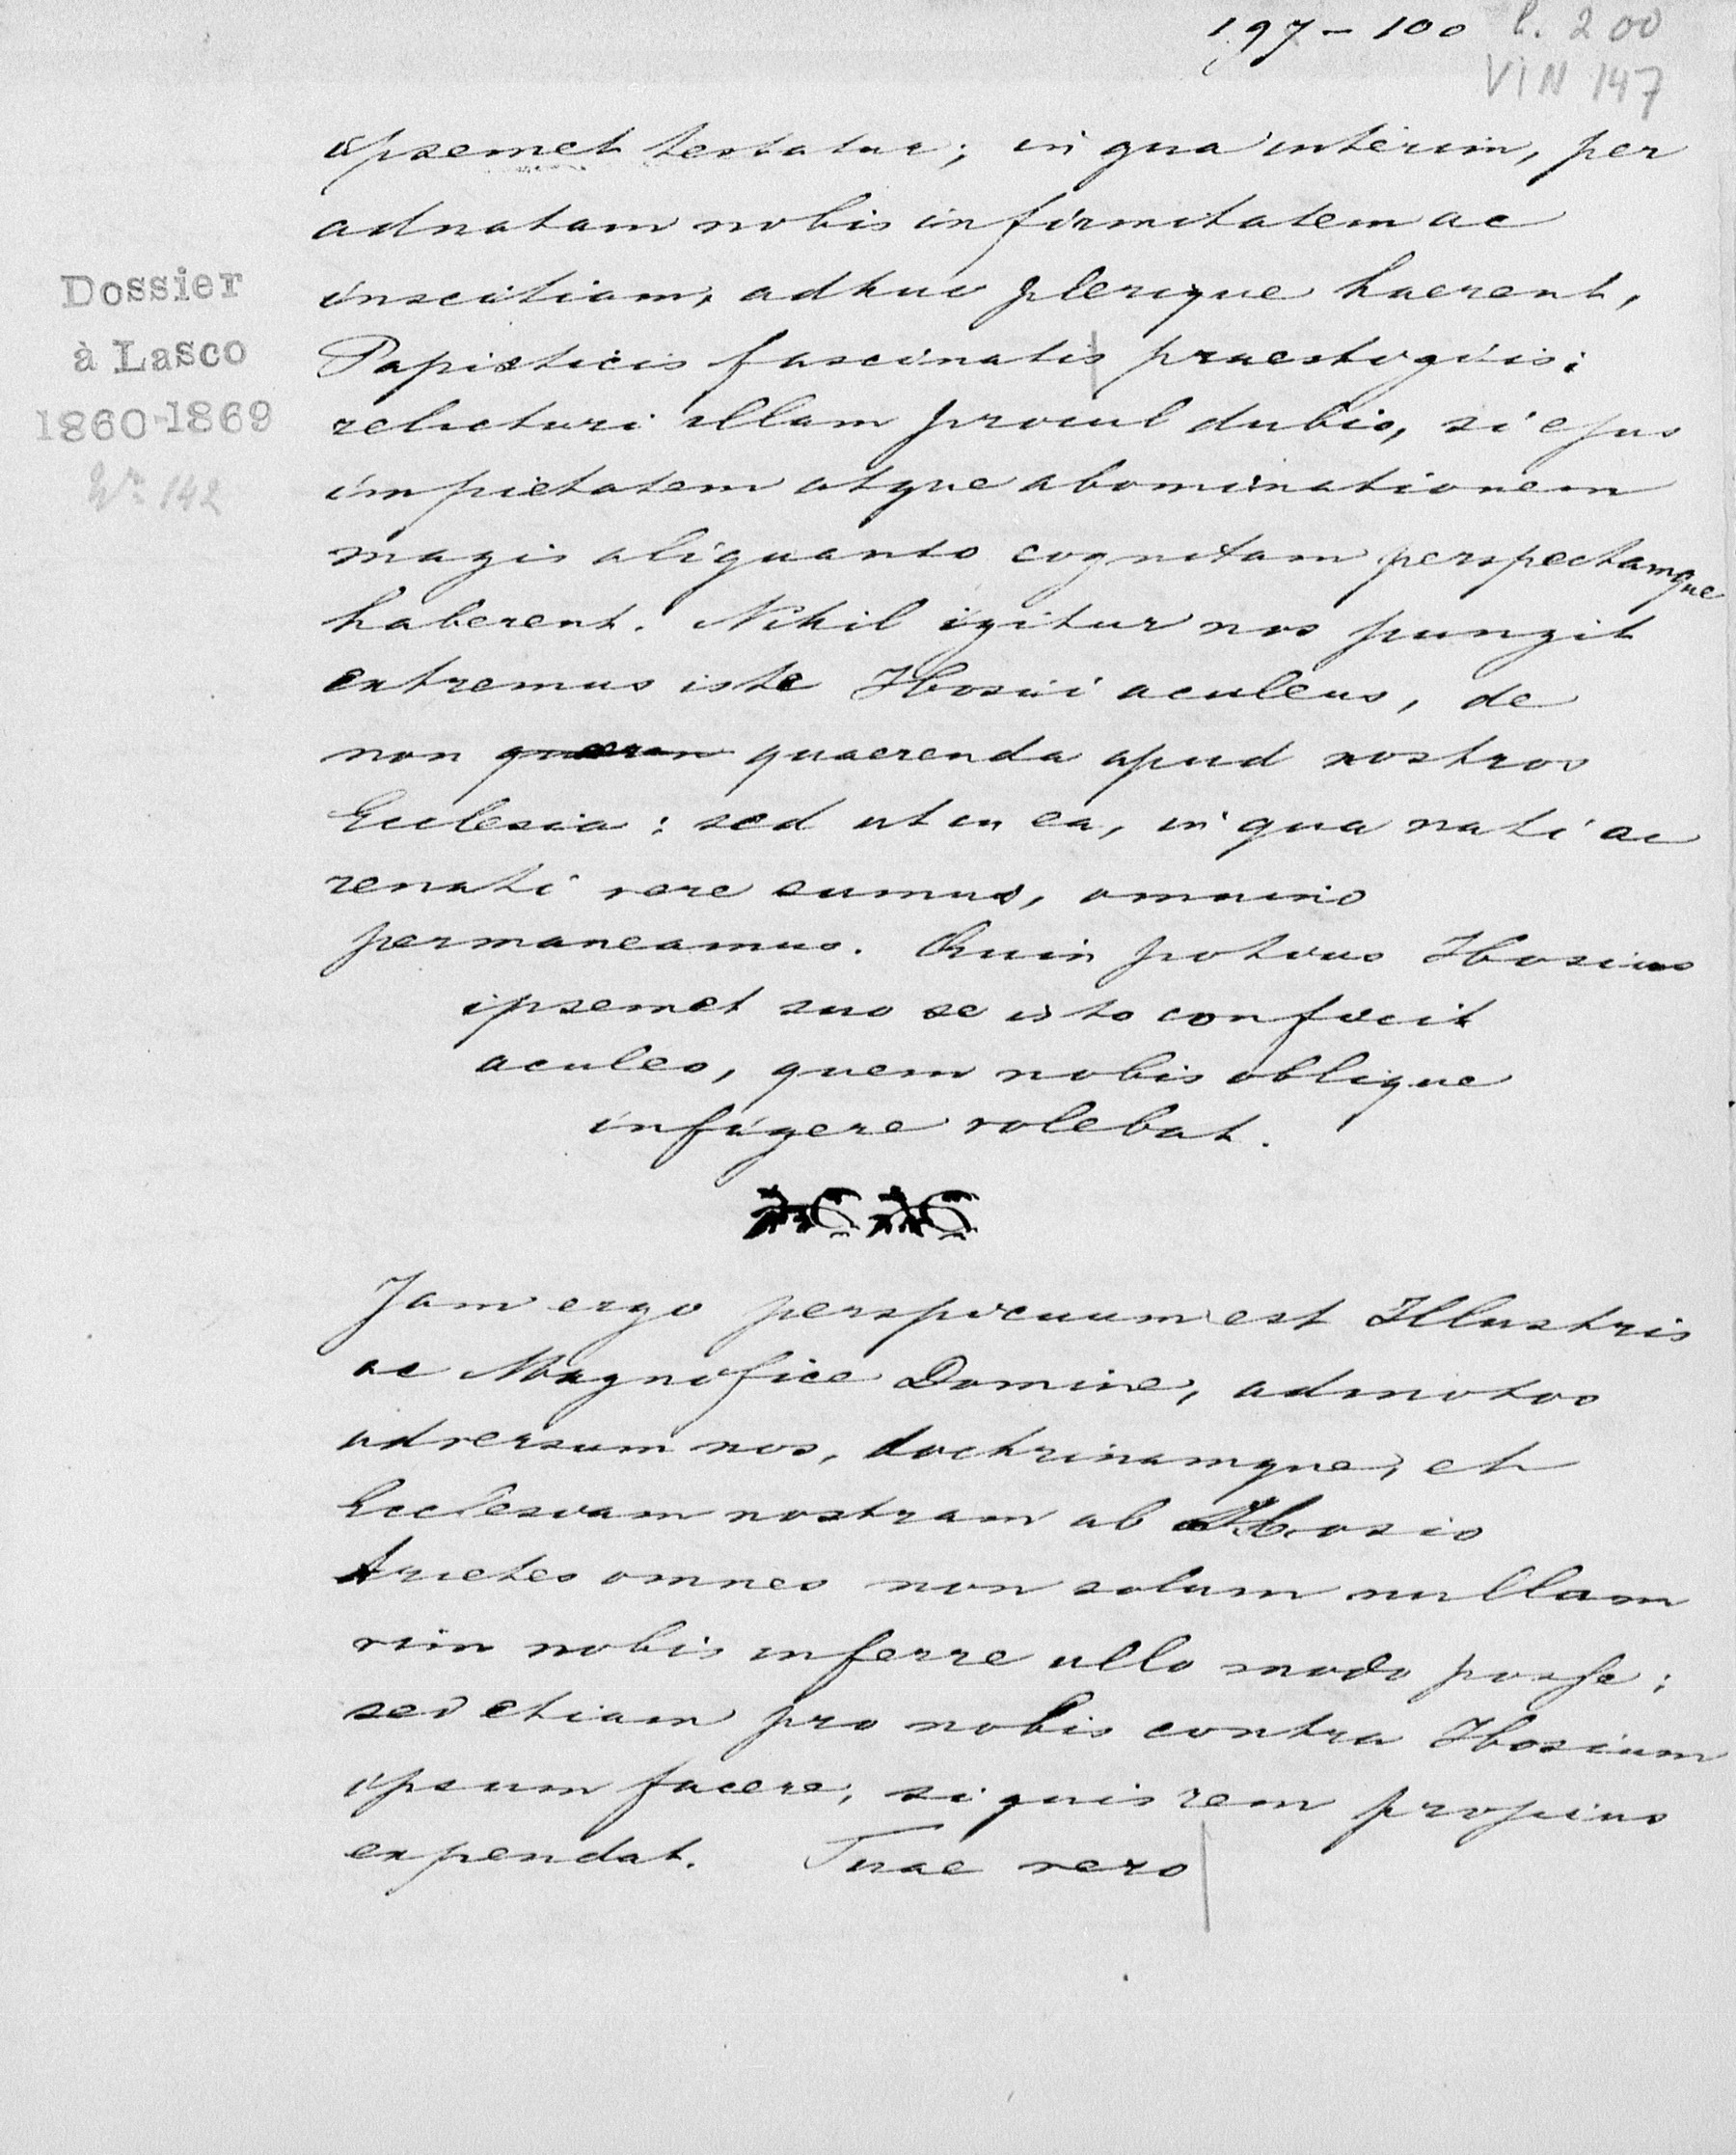 197 - 100 l. 200
VIN 147
ipsemet testatur; in qua interim, per
adnatam nobis infirmitatem ac
inscitiam, adhuc plerique haerent,
Dossier
à Lasco
1860-1869
Nr. 142
Papisticis fascinatis praestigiis:
relicturi illam procul dubio, si ejus
impietatem atque abominationem
magis aliquanto cognitam perspectamque
haberent. Nihil igitur nos pungit
extremus iste Hosii aculeus, de
non quaeren quaerenda apud nostros
Ecclesia: sed ut in ea, in qua nati ac
renati vere sumus, omnino
permaneamus. Quin potius Hosius
ipsemet suo se isto conficit
aculeo, quem nobis oblique
infigere volebat.
Jam ergo perspicuum est Illustris
ac Magnifice Domine, admotos
adversum nos, doctrinamque, et
Ecclesiam nostram ab Hosio
Arietes omnes non solum nullam
vim nobis inferre ullo modo posse;
sed etiam pro nobis contra Hosium
ipsum facere, si quis rem propius
expendat. Tuae vero